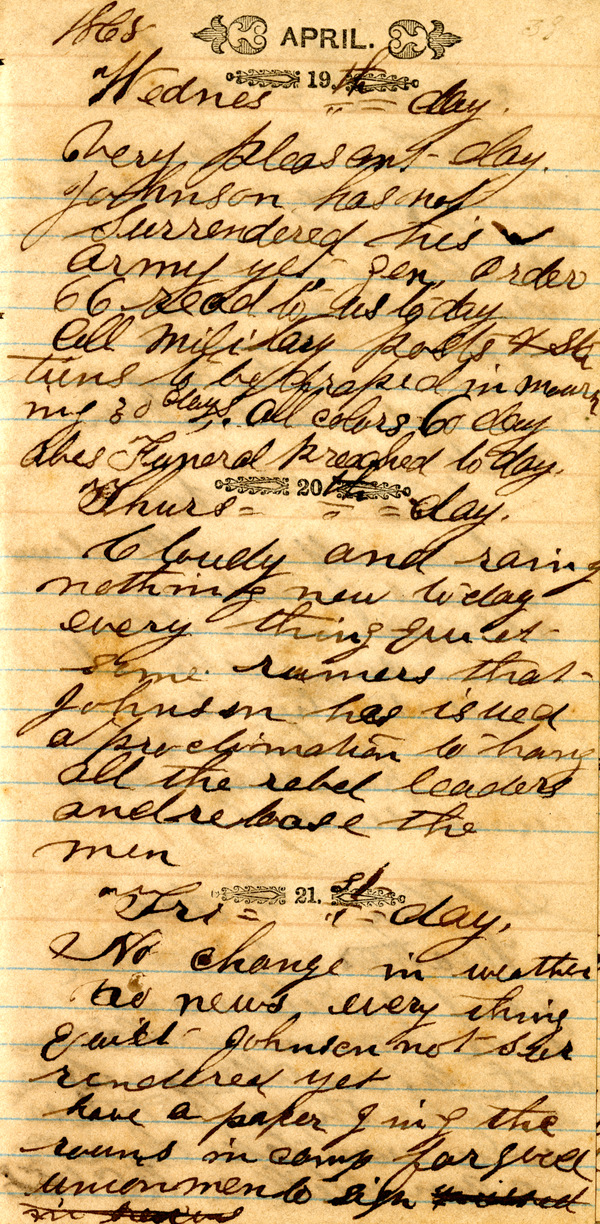 1865
APRIL.
39
19th
Wednes day.
Very pleasant day.
Johnson has not
Surrendered his
army yet. Gen. Order
66 read to us today
all military posts & sta
tions to be draped in mourn
ing 30 days. all colors 60 day
Abes Funeral preached to day.
20th
Thurs = day.
Cloudy and rainy
nothing new today
every thing quiet
some rumers that
Johnson has isued
a proclimation to hang
all the rebel leaders
and release the
men
21.st
Fri = day.
No change in weather
no news every thing
quiet Johnson not Sur
rendered yet
have a paper going the
rouns in camp for good
union men to sign